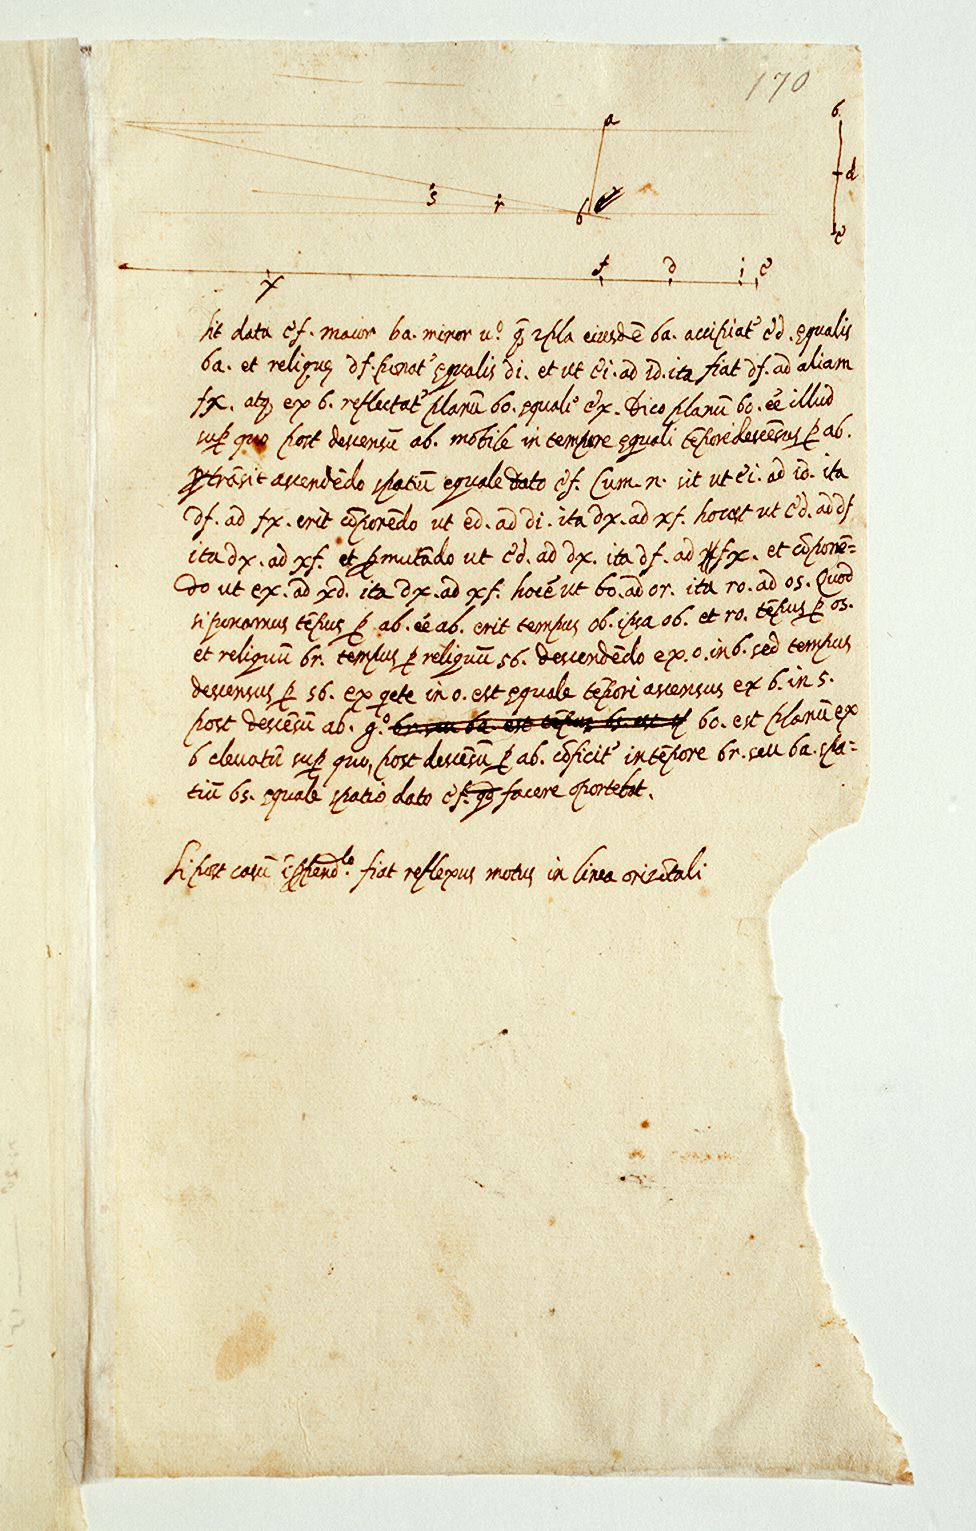 170
a
b
d
e
s
r
b
e
x
f
d
i
e
sit data ef. maior ba. minor v.º q̃ 2pla eiusdē ba. accipiat' ed. equalis
ba. et reliquę df. ponat' equalis di. et ut ei. ad id. ita fiat df. ad aliam
fx. atq; ex b. reflectat' planū bo. equale ex. Dico planū bo. eē illud
sup̄ quo post descensū ab. mobile in tempore equali tēpori descēsus p̄ ab.
p̄trāsit ascendēdo spatiū equale dato ef. Cum. n. sit ut ei. ad id. ita
df. ad fx. erit cōponēdo ut ed. ad di. ita dx. ad xf. hoc est ut ed. ad df
ita dx. ad xf. et p̄mutādo ut ed. ad dx. ita df. ad fx. et cōponē=
do ut ex. ad xd. ita dx. ad xf. hoc ē ut bo. ad or. ita ro. ad os. Quod
si ponamus tēpus p̄ ab. eē ab. erit tempus ob. ipsa ob. et ro. tēpus p̄ os.
et reliquū br. tempus p̄ reliquū sb. descendēdo ex. o. in b. sed tempus
descensus p̄ sb. ex qete in o. est equale tēpori ascensus ex b. in s.
post descēsū ab. g.º br. seu ba. est tēpus bs. bo. est planū ex
b elevatū sup̄ quo, post descēsū p̄ ab. cōficit' in tēpore br. seu ba. spa=
tiū bs. equale spatio dato ef. qd facere oportebat.
Si post casū ī ppend.lo fiat reflexus motus in linea orizōtali